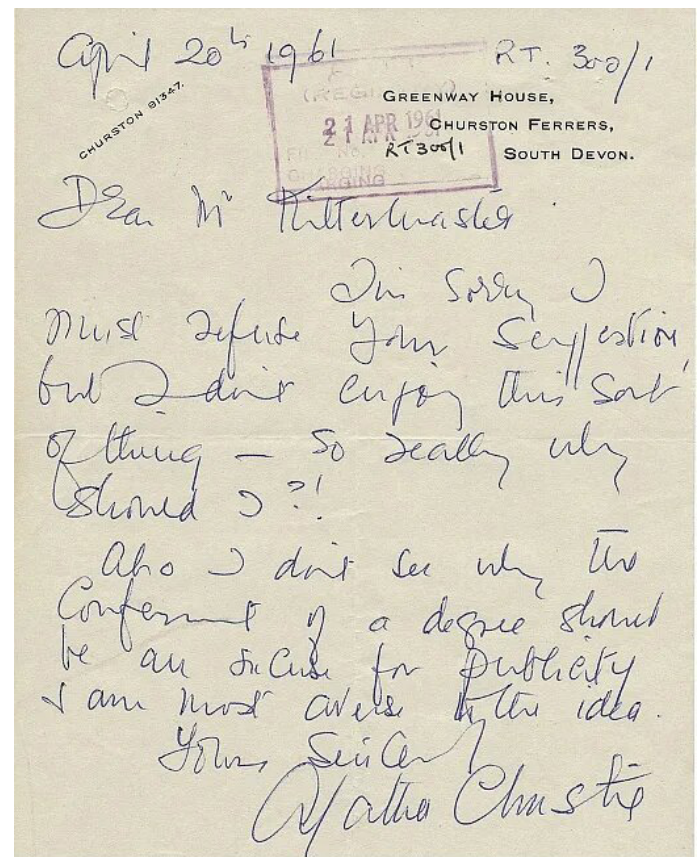 April 20th 1961
RT. 300/1
CHURSTON 81347.
GREENWAY HOUSE,
CHURSTON FERRERS,
SOUTH DEVON.
21 APR 1961
RT300/1
Dear Mr Kittermaster
I'm sorry I
must refuse your suggestion,
but I don't enjoy this sort
of thing — so really why
should I?!
Also I don't see why the
Conferment of a degree should
be an excuse for publicity
I am most averse to the idea.
Yours Sincerely
Agatha Christie